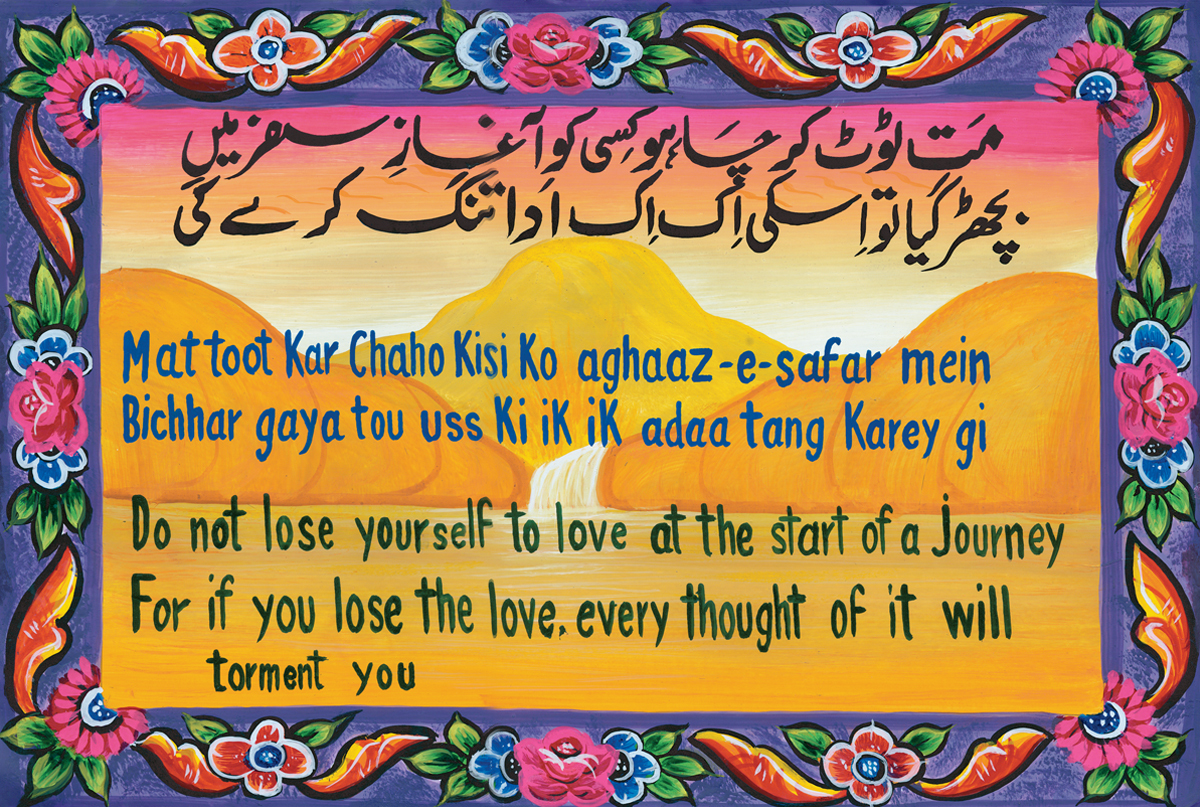 مَت ٹوٹ کر چَاہو کِسی کو آغازِ سفر میں
بچھڑ گیا تو اِسکی اِک اِک اَدا تنگ کرے گی
Mat toot Kar Chaho Kisi Ko aghaaz-e-safar mein
Bichhar gaya tou uss Ki iK iK adaa tang Karey gi
Do not lose yourself to love at the start of a Journey
For if you lose the love, every thought of it will
torment you